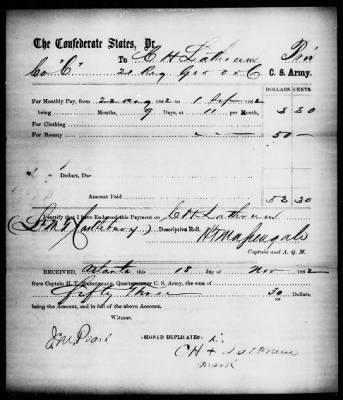 The Confederate States, Dr.
To C H Lathum Pri
Co "C" 20 Reg Geo C. S. Army.
DOLLARS CENTS.
For Monthly Pay, from 22 Aug 1862 to 1 Sep 1862
being Months, 9 Days, at 11 per Month, 3 30
For Clothing
For Bounty 50 —
Deduct, Due
Amount Paid 53 30
I certify that I have Endorsed this Payment on C H Lathum
Descriptive Roll. H T Massengale
Captain and A. Q. M.
RECEIVED, Atlanta this 18 day of Nov 1862
from Captain H. T. MASSENGALE, Quartermaster C. S. Army, the sum of
Fifty Three 30/100 Dollars,
being the Amount, and in full of the above Amount.
Witness.
(SIGNED DUPLICATES)
C H + Lathum
mark